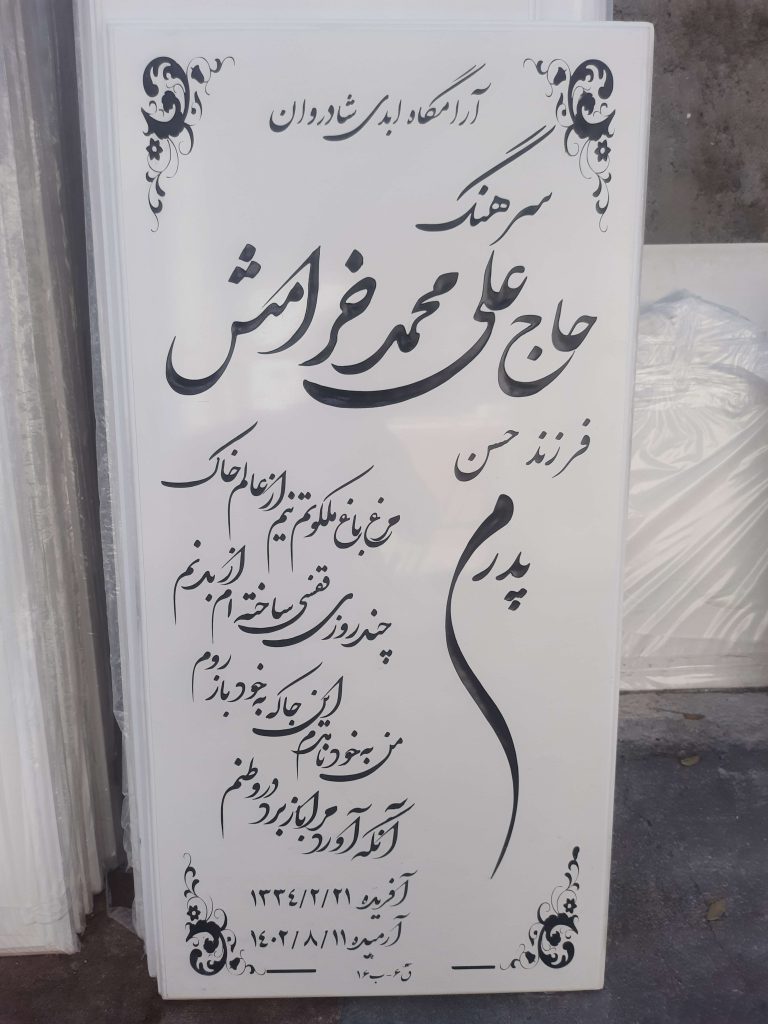 آرامگاه ابدی شادروان
سرهنگ
حاج علی محمد خرامش
فرزند حسن
پدرم
مرغ باغ ملکوتم نیم از عالم خاک
چند روزی قفسی ساخته ام از بدنم
من به خود نامدم این جا که به خود باز روم
آنکه آورد مرا باز برد در وطنم
آفریده ۱۳۳٤/۲/۲۱
آرمیده ۱٤۰۲/۸/۱۱
ق۶-ب۱۶